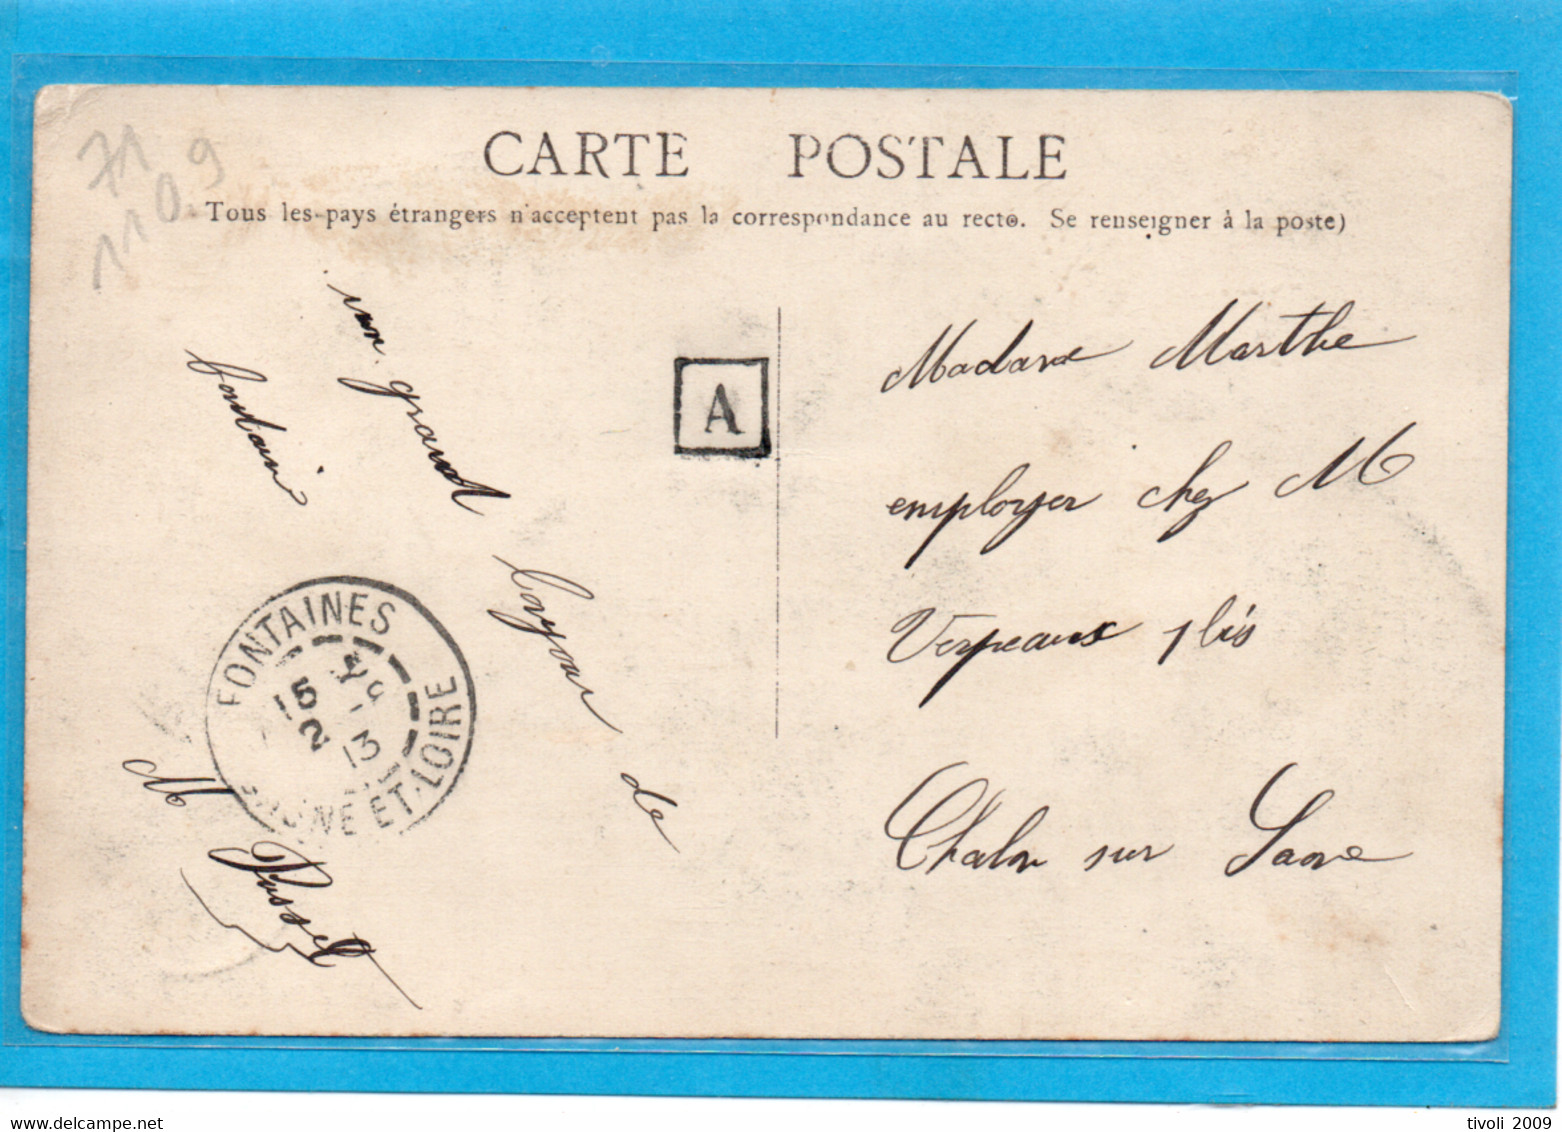 CARTE POSTALE
Tous les pays étrangers n'acceptent pas la correspondance au recto. Se renseigner à la poste)
71
110.9
un grand
bonjour de
fontaine
M Posset
A
FONTAINES
SAONE ET-LOIRE
15
2
13
Madame Marthe
employer chez M
Verpeaux
Chalon sur Saone
tivoli 2009